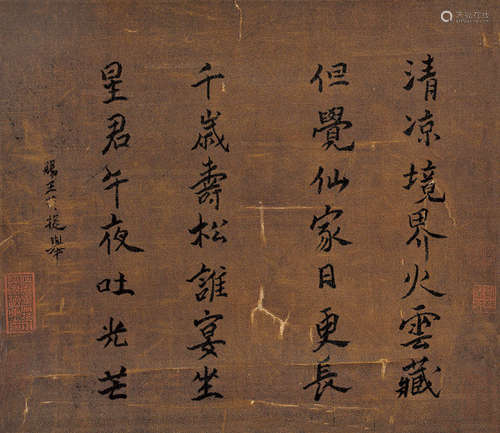 清凉境界火雲藏
但覺仙家日更長
千歲壽松誰宴坐
星君午夜吐光芒
賜王提舉